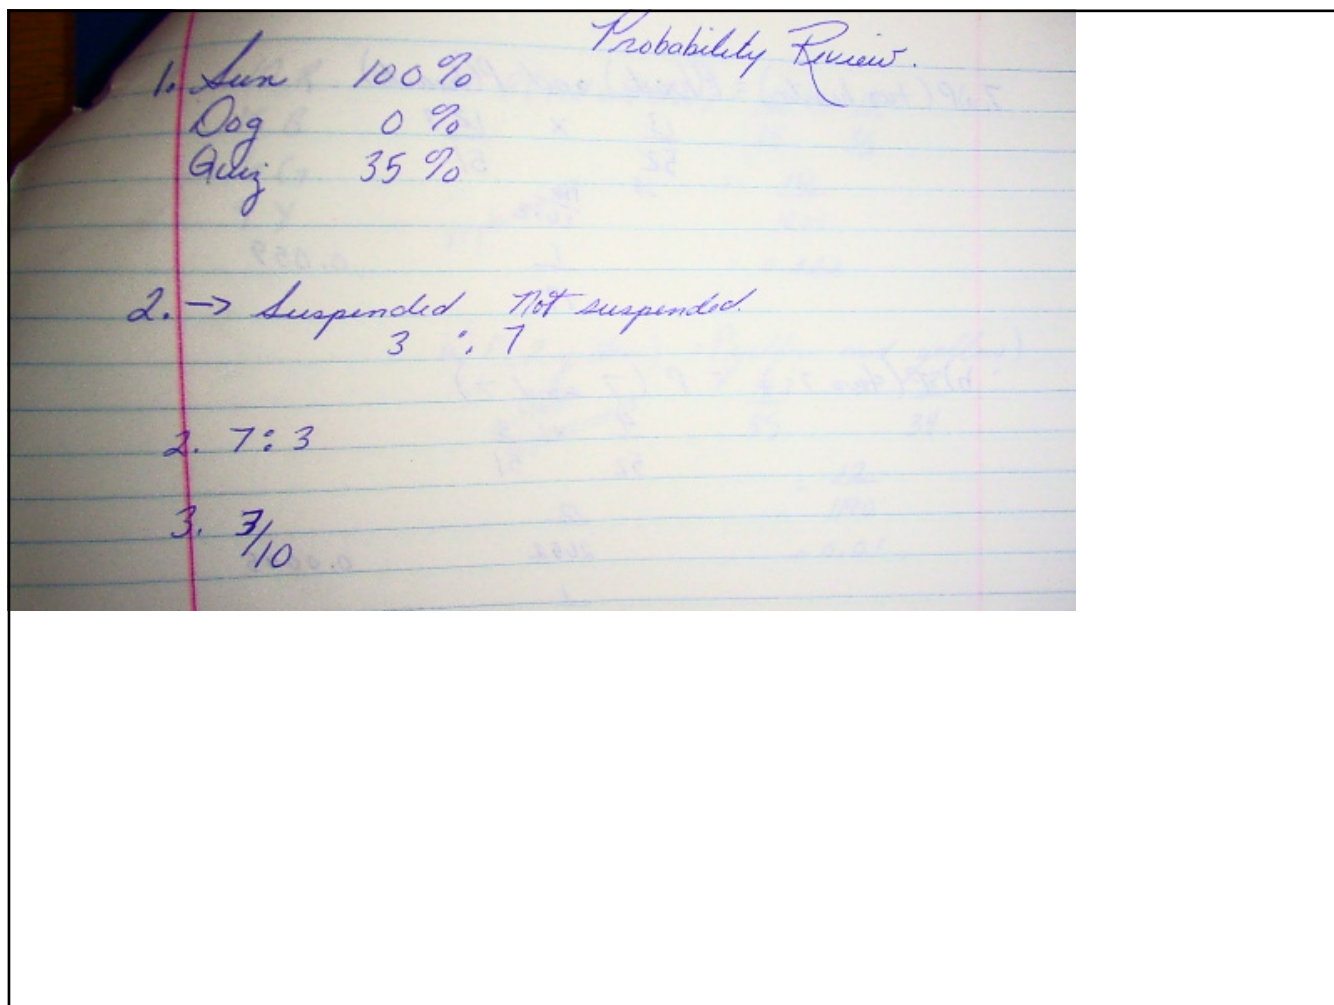 Probability Review.
1. Sun 100%
Dog 0%
Quiz 35%
2. → Suspended Not suspended.
3 : 7
2. 7:3
3. 3/10